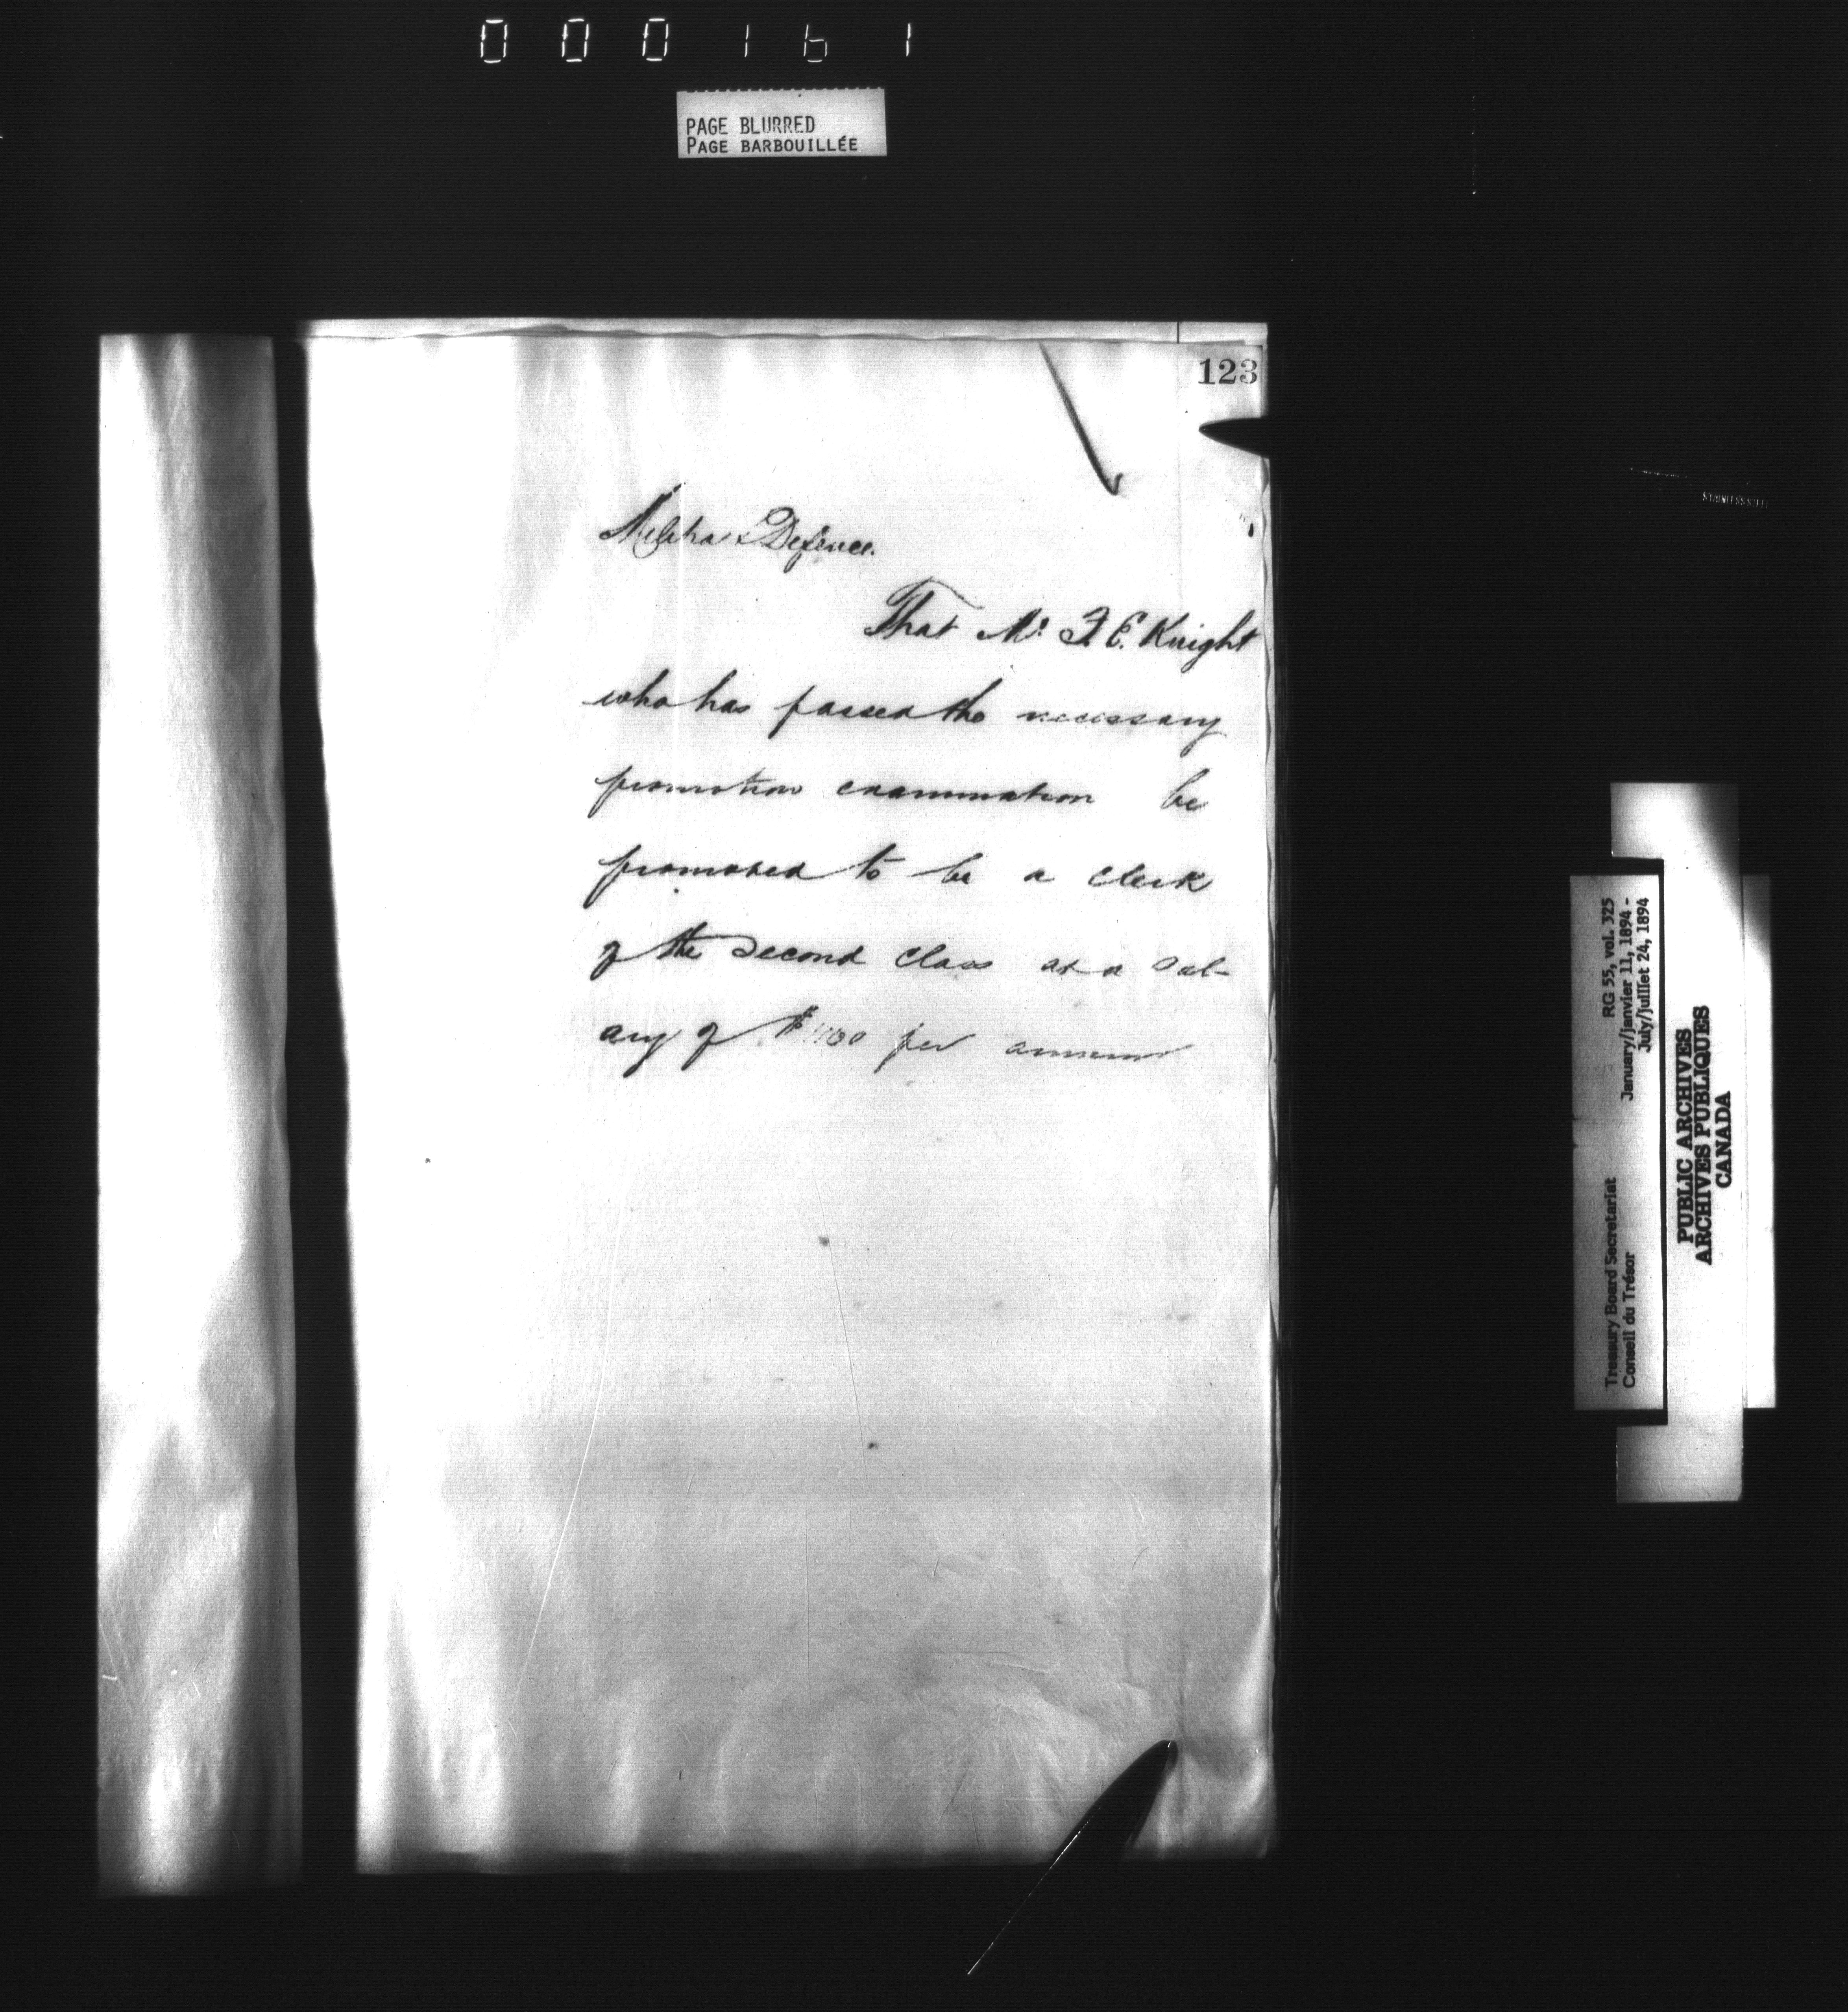 000161
PAGE BLURRED
PAGE BARBOUILLÉE
123
Militia & Defence.
That Mr. F. E. Knight
who has passed the necessary
promotion examination be
promoted to be a clerk
of the second class at a sal-
ary of $1100 per annum
RG 55, vol. 325
January/janvier 11, 1894 -
July/juillet 24, 1894
Treasury Board Secretariat
Conseil du Trésor
PUBLIC ARCHIVES
ARCHIVES PUBLIQUES
CANADA